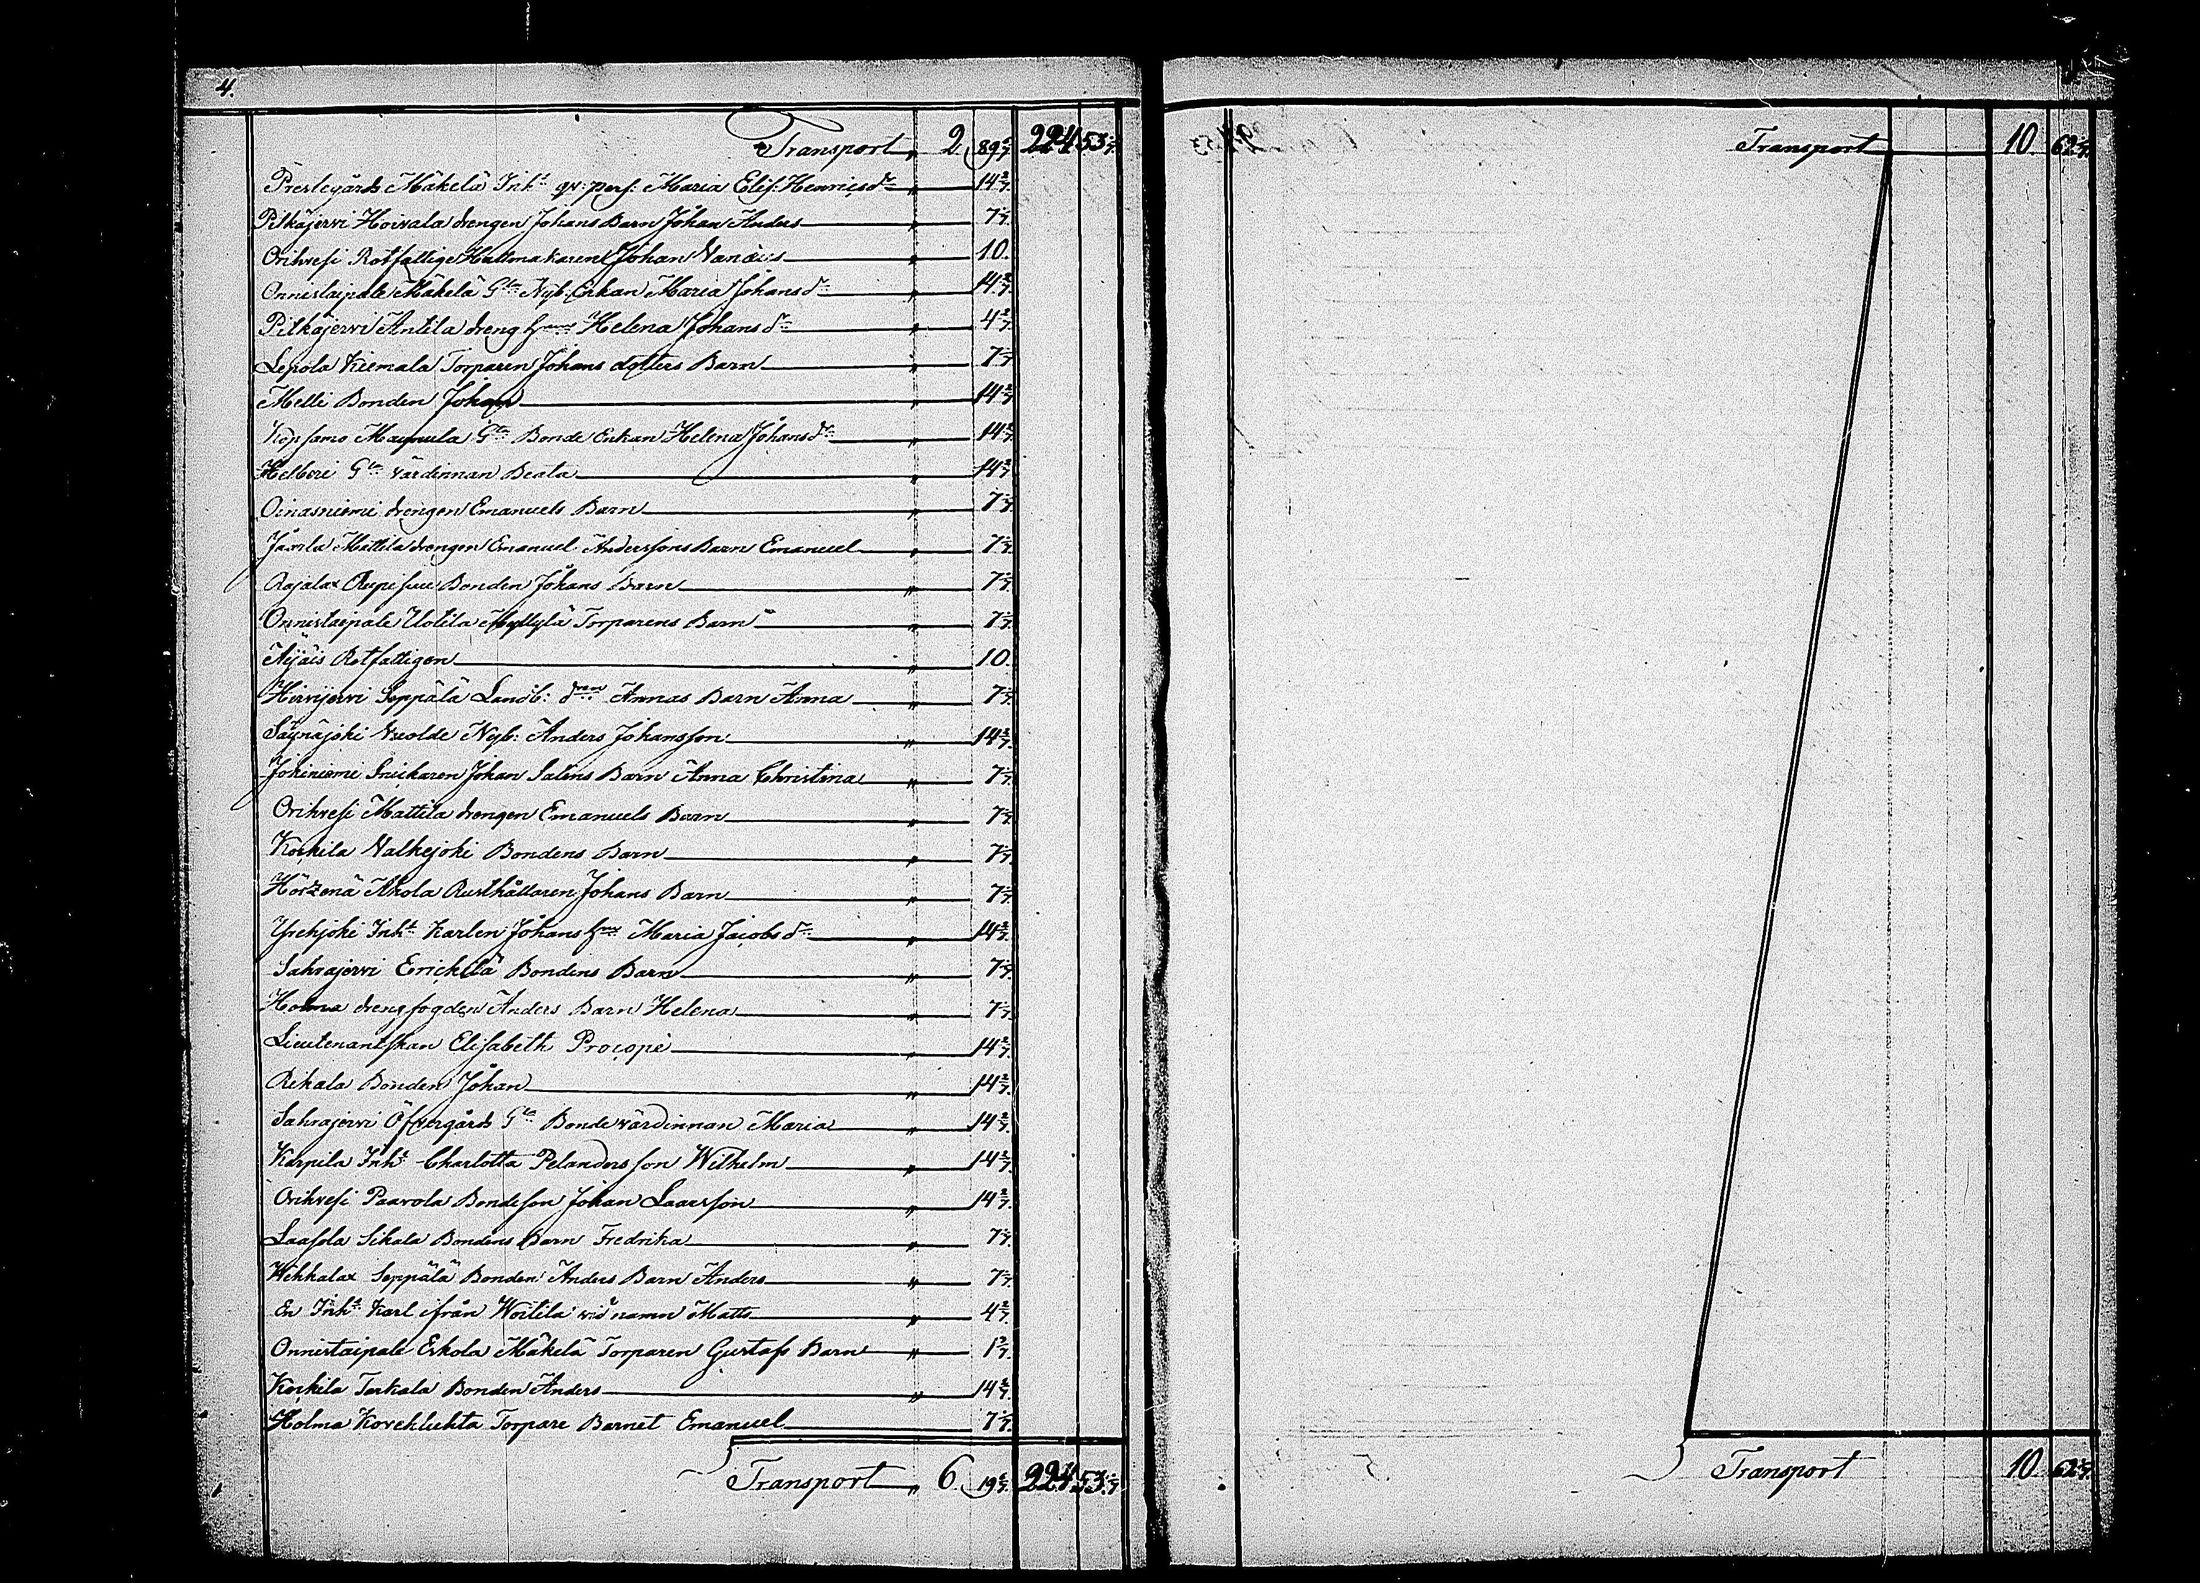 4.
Transport „ 2 89 6/7. 224 53 1/7.
Prestegårds Mäkelä Inh:s qv: pers: Maria Elis: Henricsdr „ 14 2/7.
Pitkäjerwi Hoivala drengen Johans Barn Johan Anders „ 7 1/7.
Orihvesi Rotfattige Hattmakaren Johan Nanæus „ 10.
Onnistaipale Mäkelä Gla Nyb: Enkan Maria Johansdr „ 14 2/7.
Pitkäjerwi Anttila dreng Helena Johansdr „ 4 2/7.
Lepola Kiemala Torparen Johans dotters Barn „ 7 1/7.
Melli Bonden Johan „ 14 2/7.
Kopsamo Maunula Gla Bonde Enkan Helena Johansdr „ 14 2/7.
Gla värdinnan Beata „ 14 2/7.
Oinasniemi drengen Emanuels Barn „ 7 1/7.
Mattila drengen Emanuel Anderssons Barn Emanuel „ 7 1/7.
Rajalax Bonden Johans Barn „ 7 1/7.
Onnistaipale Uotila Myllylä Torparens Barn „ 7 1/7.
Äijäis Rotfattigen „ 10.
Hirvijervi Seppälä Landb: drns Annas Barn Anna „ 7 1/7.
Säynäjoki Nyb: Anders Johansson „ 14 2/7.
Jokiniemi Snickaren Johan Salins Barn Anna Christina „ 7 1/7.
Orihvesi Mattila drengen Emanuels Barn „ 7 1/7.
Korkila Valkejoki Bondens Barn „ 7 1/7.
Rusthållaren Johans Barn „ 7 1/7.
Inh:s Karlen Johans Maria Jacobsdr „ 14 2/7.
Sahrajervi Erickilä Bondens Barn „ 7 1/7.
Holma drengfogden Anders Barn Helena „ 7 1/7.
Lieutenantskan Elisabeth Procopé „ 14 2/7.
Rikala Bonden Johan „ 14 2/7.
Sahrajervi Öfvergårds Gla Bondevärdinnan Maria „ 14 2/7.
Karpila Inh:s Charlotta Pelanders son Wilhelm „ 14 2/7.
Orihvesi Paavola Bondeson Johan Laarsson „ 14 2/7.
Laasola Sikala Bondens Barn Fredrika „ 7 1/7.
Wehkalax Seppälä Bonden Anders Barn Anders „ 7 1/7.
En Inh:s Karl ifrån Woitila vid namn Matts „ 4 2/7.
Onnistaipale Eskola Mäkelä Torparen Gustafs Barn „ 1 3/7.
Korkila Terkala Bonden Anders „ 14 2/7.
Holma Korehluhta Torpare Barnet Emanuel 7 1/7.
Transport „ 6. 19 6/7. 224 53 1/7.
Transport 10. 62 6/7.
Transport 10. 62 6/7.